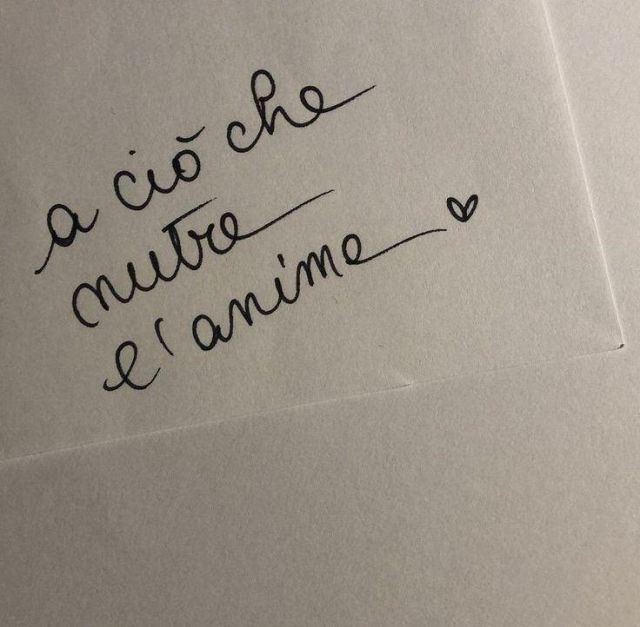 a ciò che
nutre
l'anima ♥